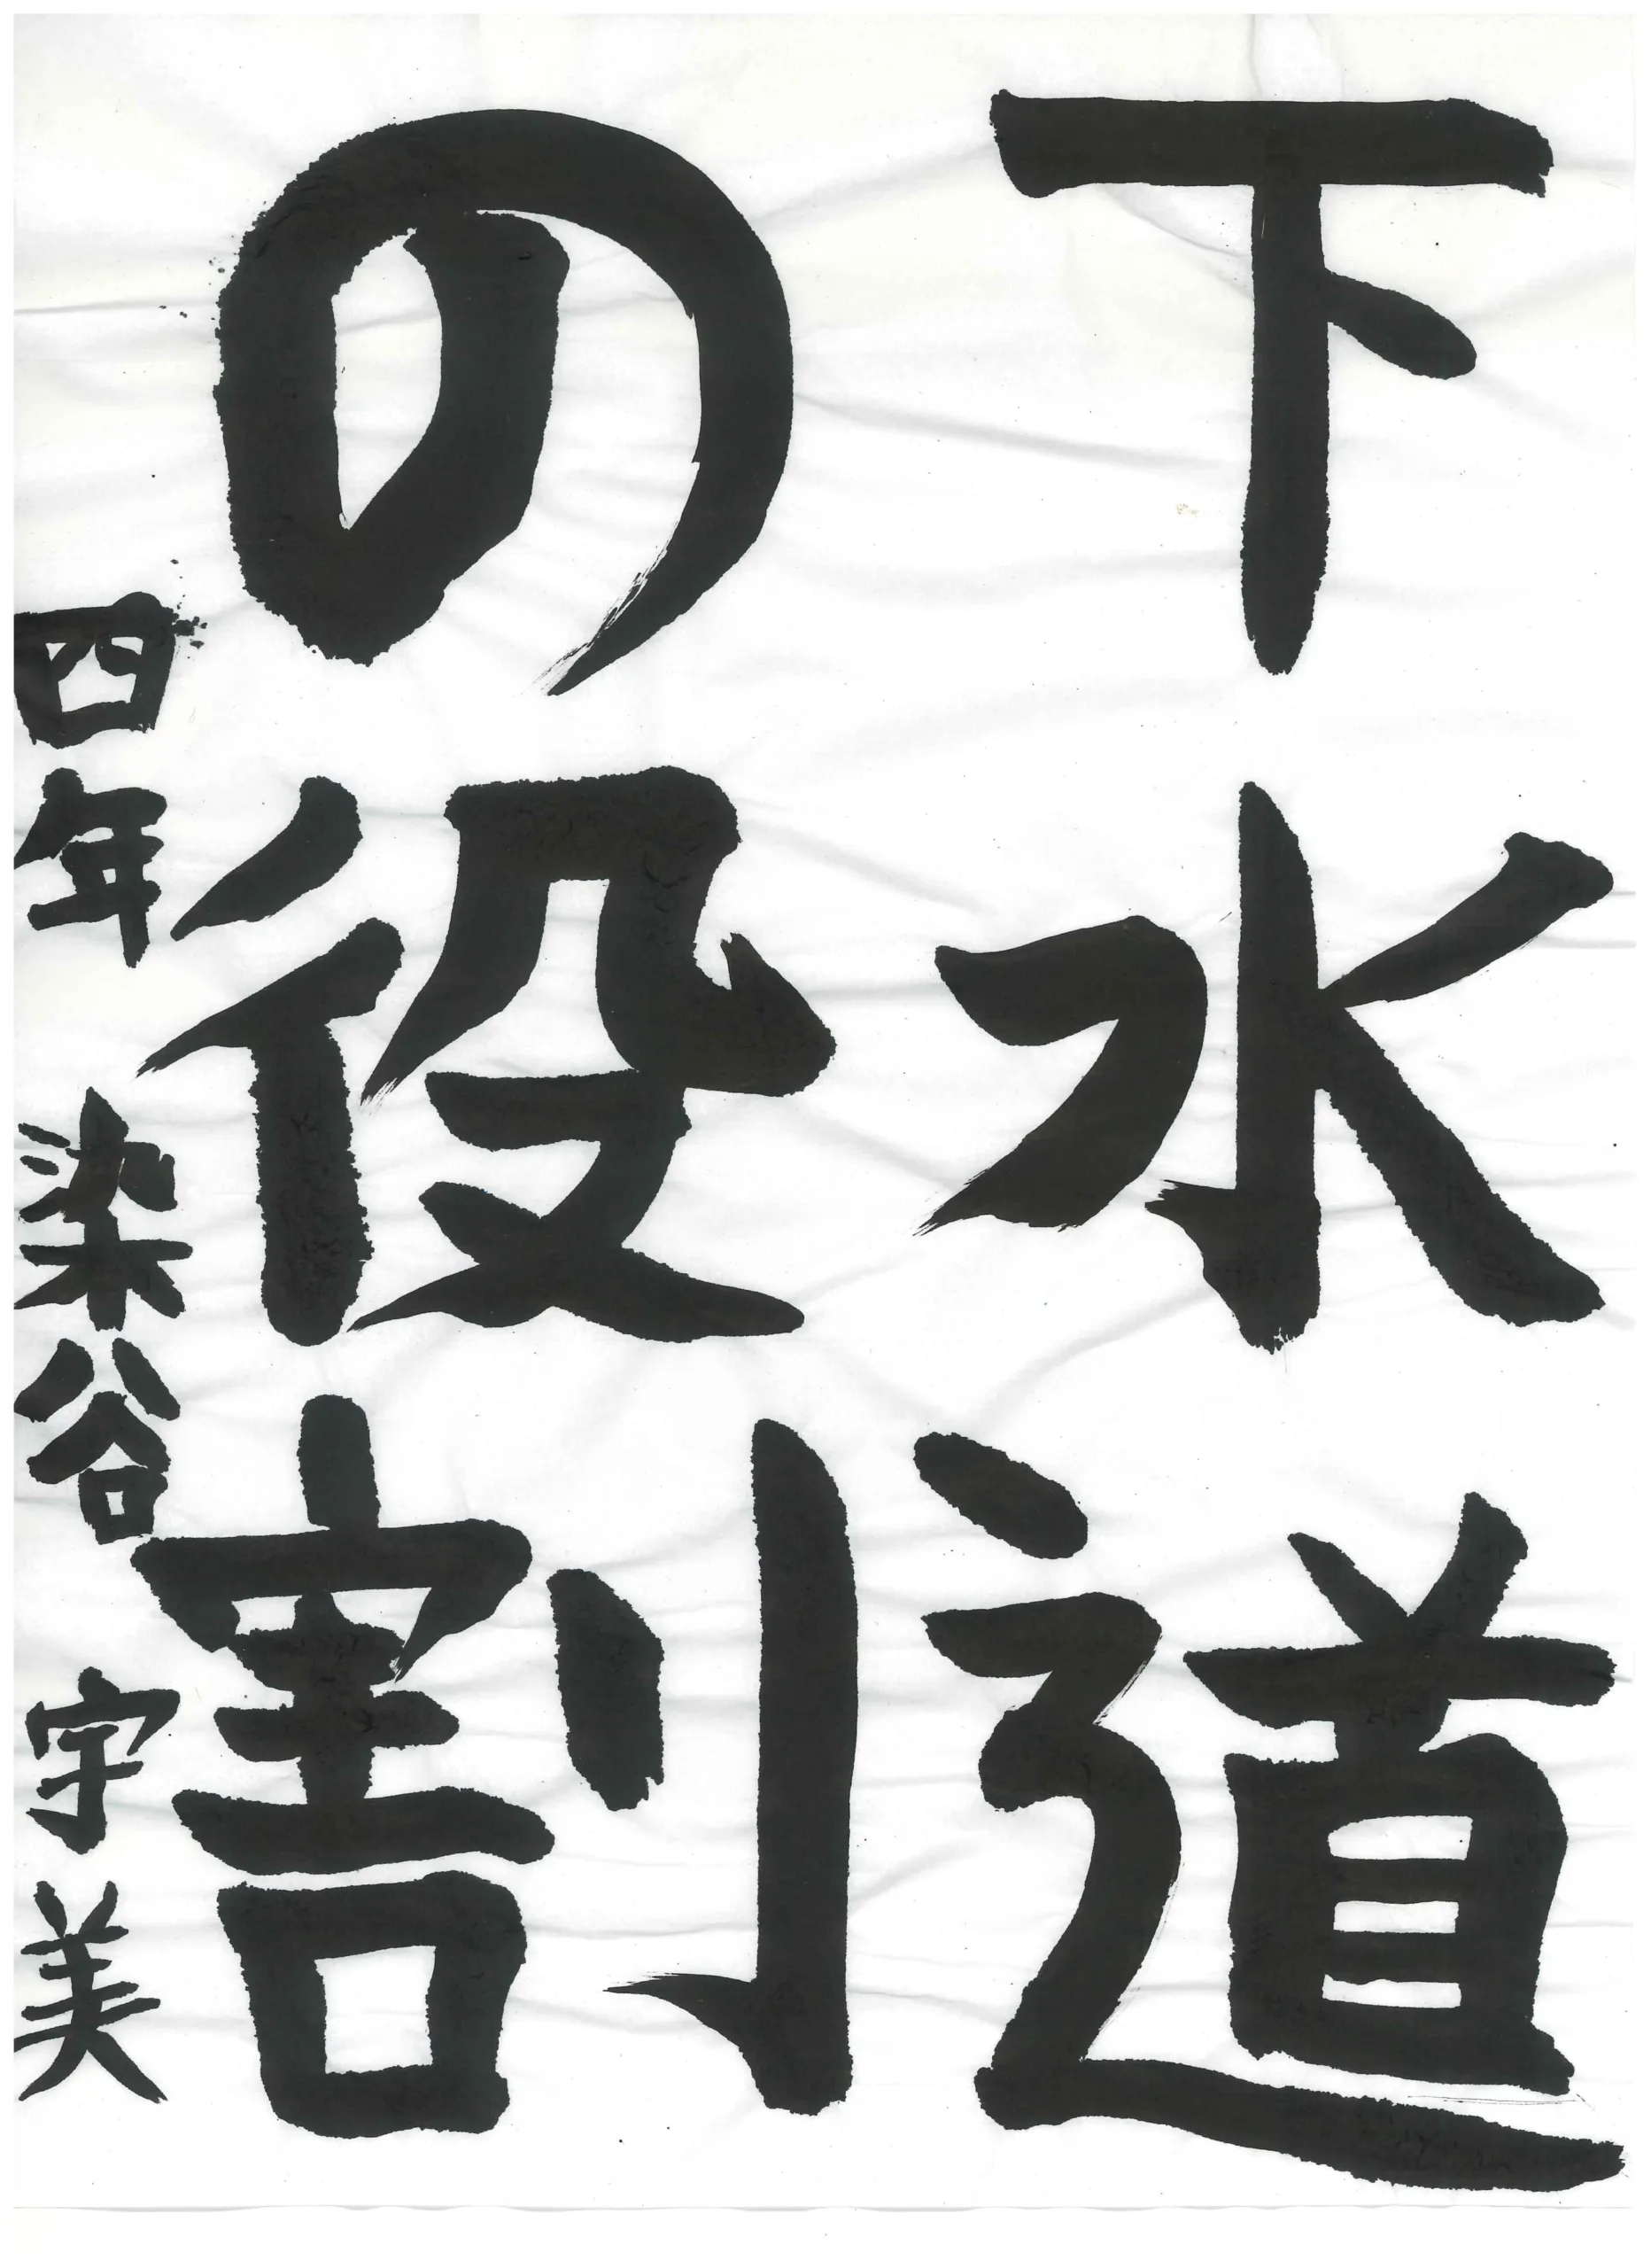 下水道
の役割
四年 染谷 宇美